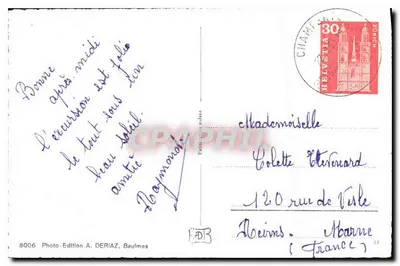 Bonne
après midi
l'excursion est jolie
le tout sous un
beau soleil.
amitié
Raymonde
8006 Photo-Edition A. DERIAZ, Baulmes
30
HELVETIA
ZÜRICH
CHAMP
Mademoiselle
Colette Thévenard
120 rue de Vesle
Reims. Marne
(France)